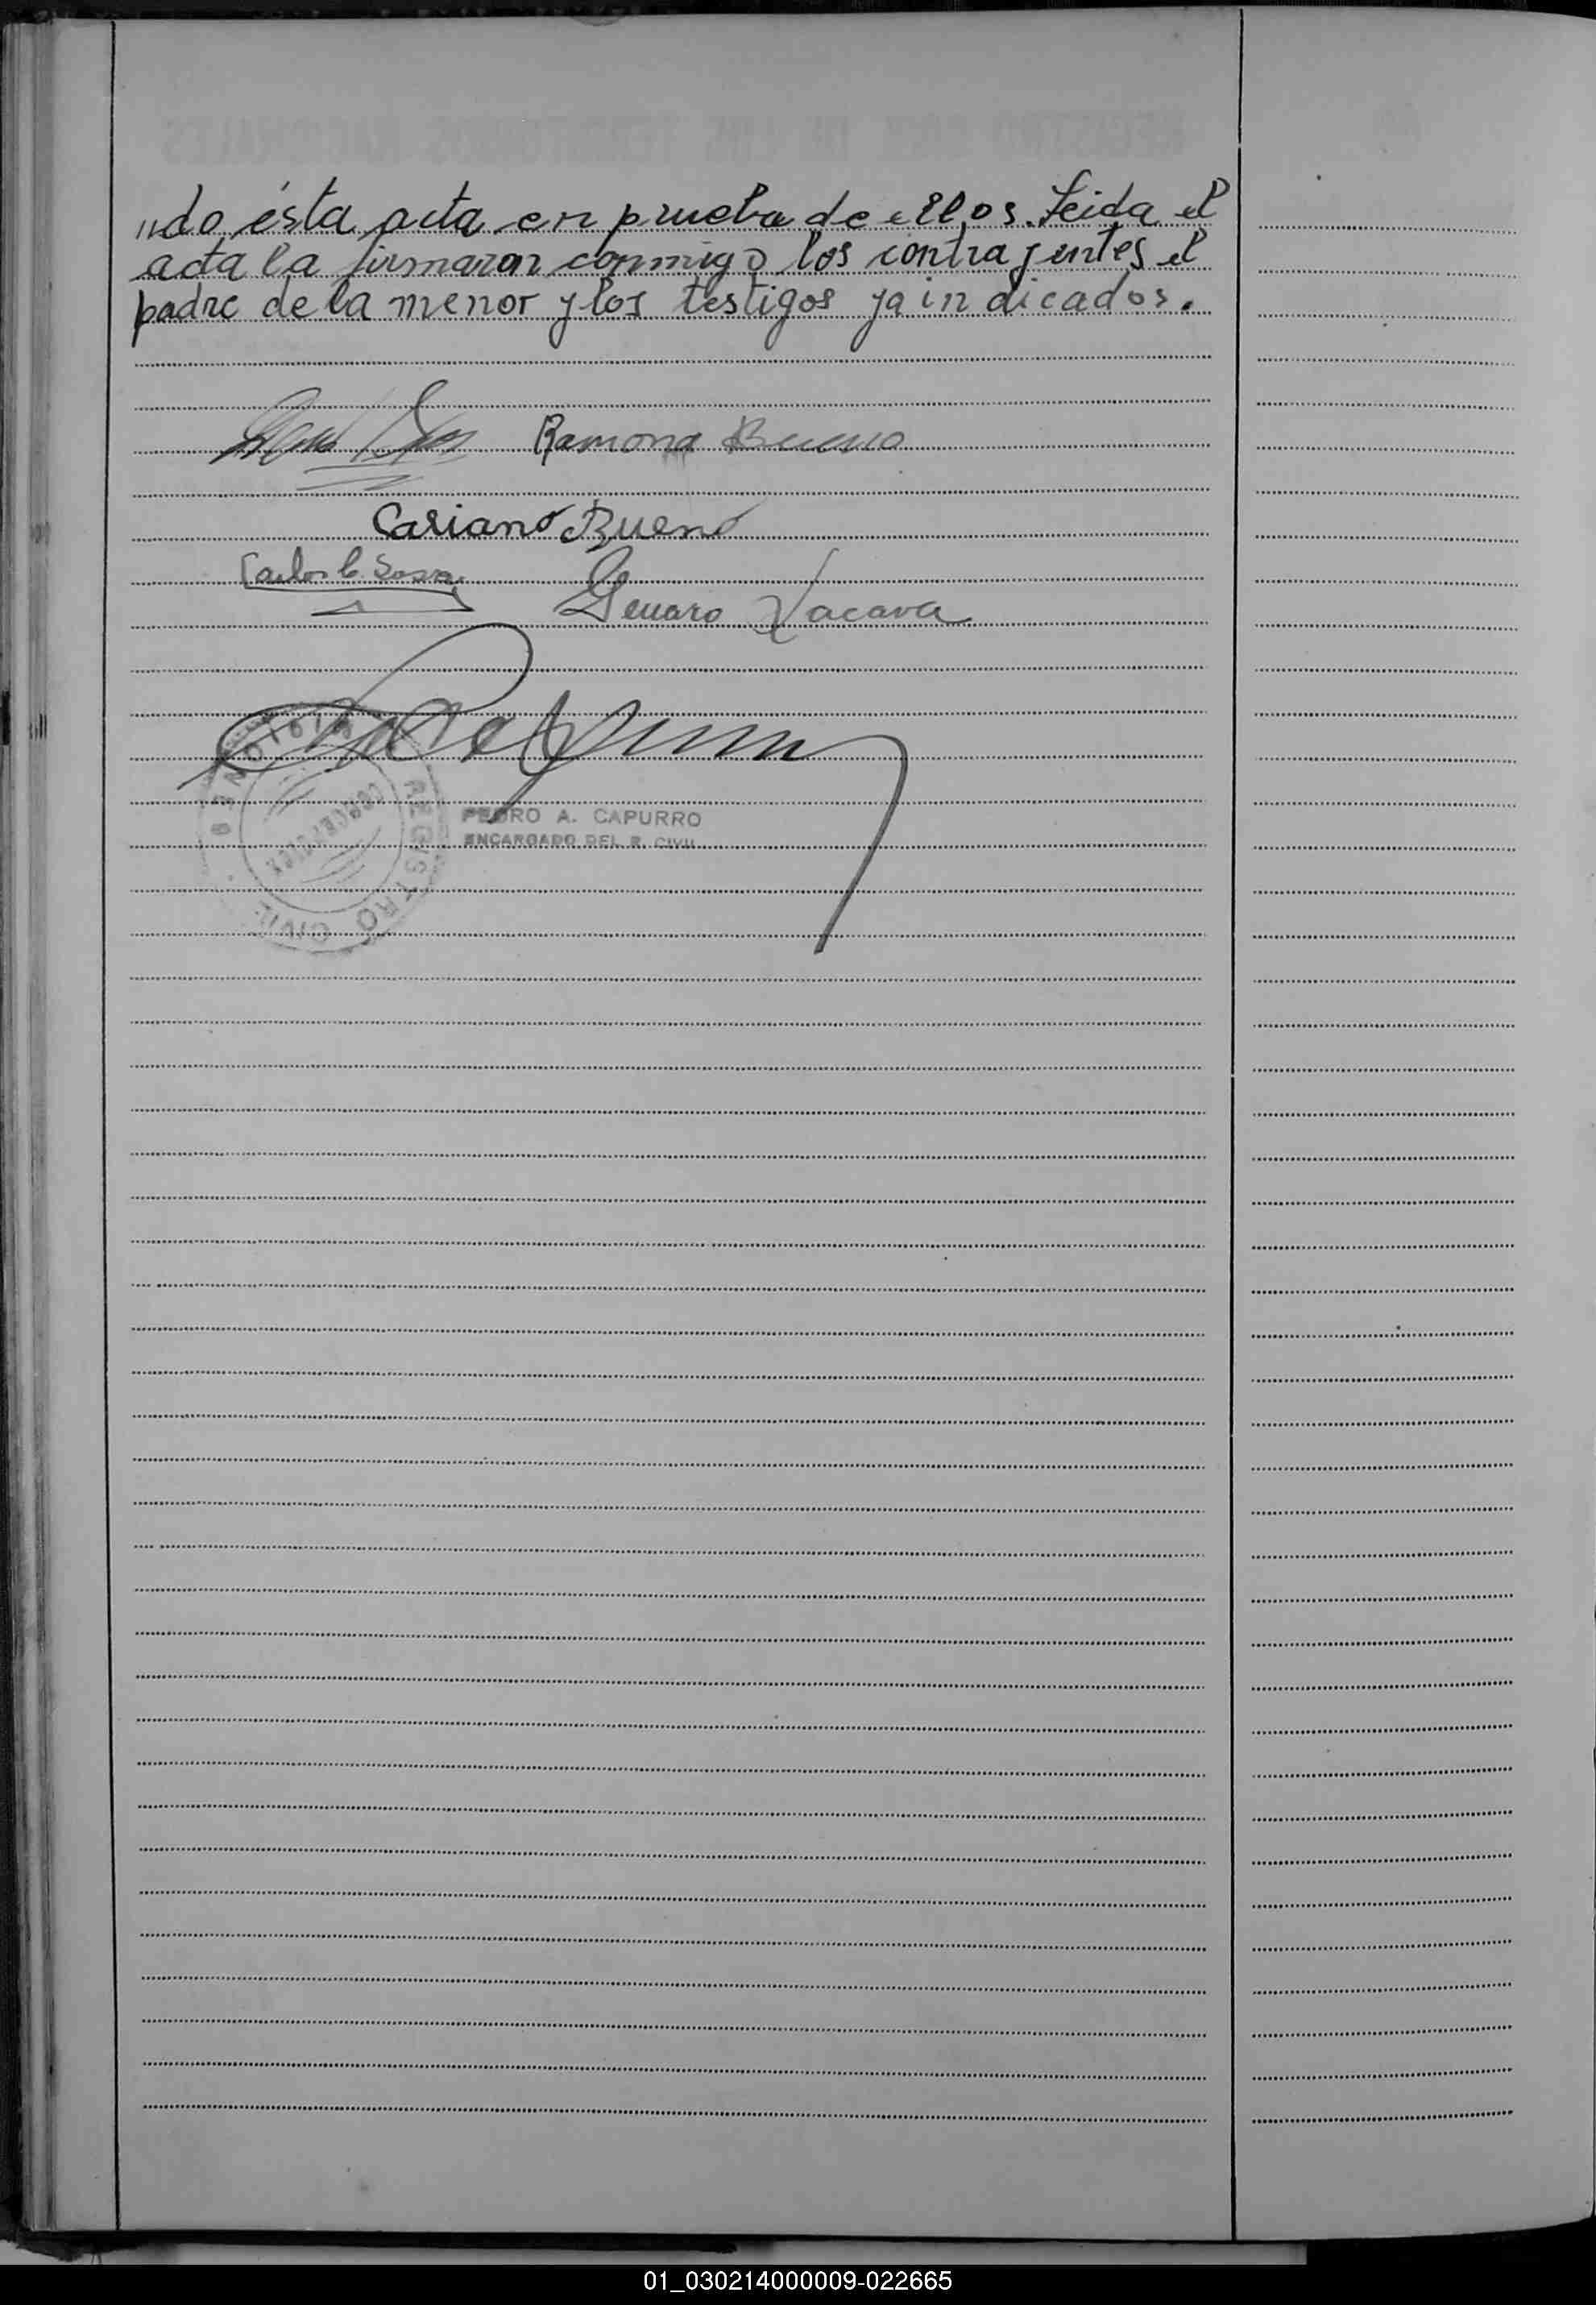 "do ésta acta en prueba de ellos. Leida el
acta la firmaron conmigo los contrajentes el
padre de la menor y los testigos ya indicados.
Ramona Bueno
Casiano Bueno
Carlos C. Sosa
Genaro Lacava
PEDRO A. CAPURRO
ENCARGADO DEL R. CIVIL
MISIONES
REGISTRO CIVIL
CONCEPCION
01_030214000009-022665